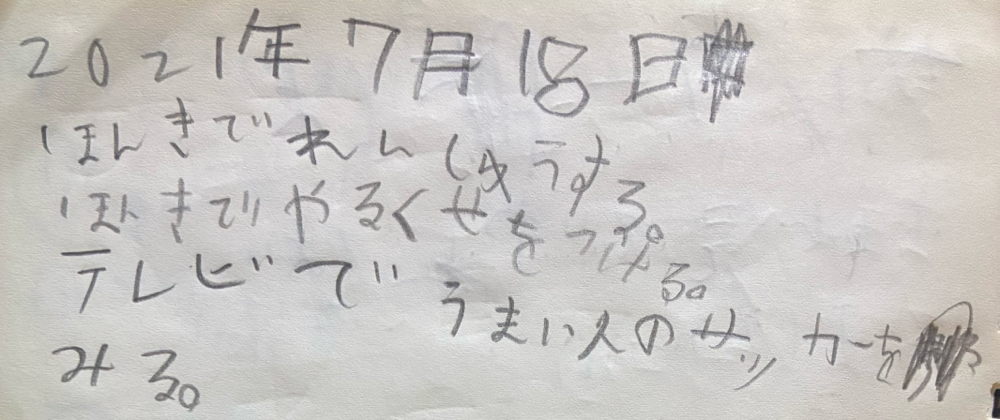 2021年7月18日
ほんきでれんしゅうする。
ほんきでやるくせをつける。
テレビでうまい人のサッカーを
みる。